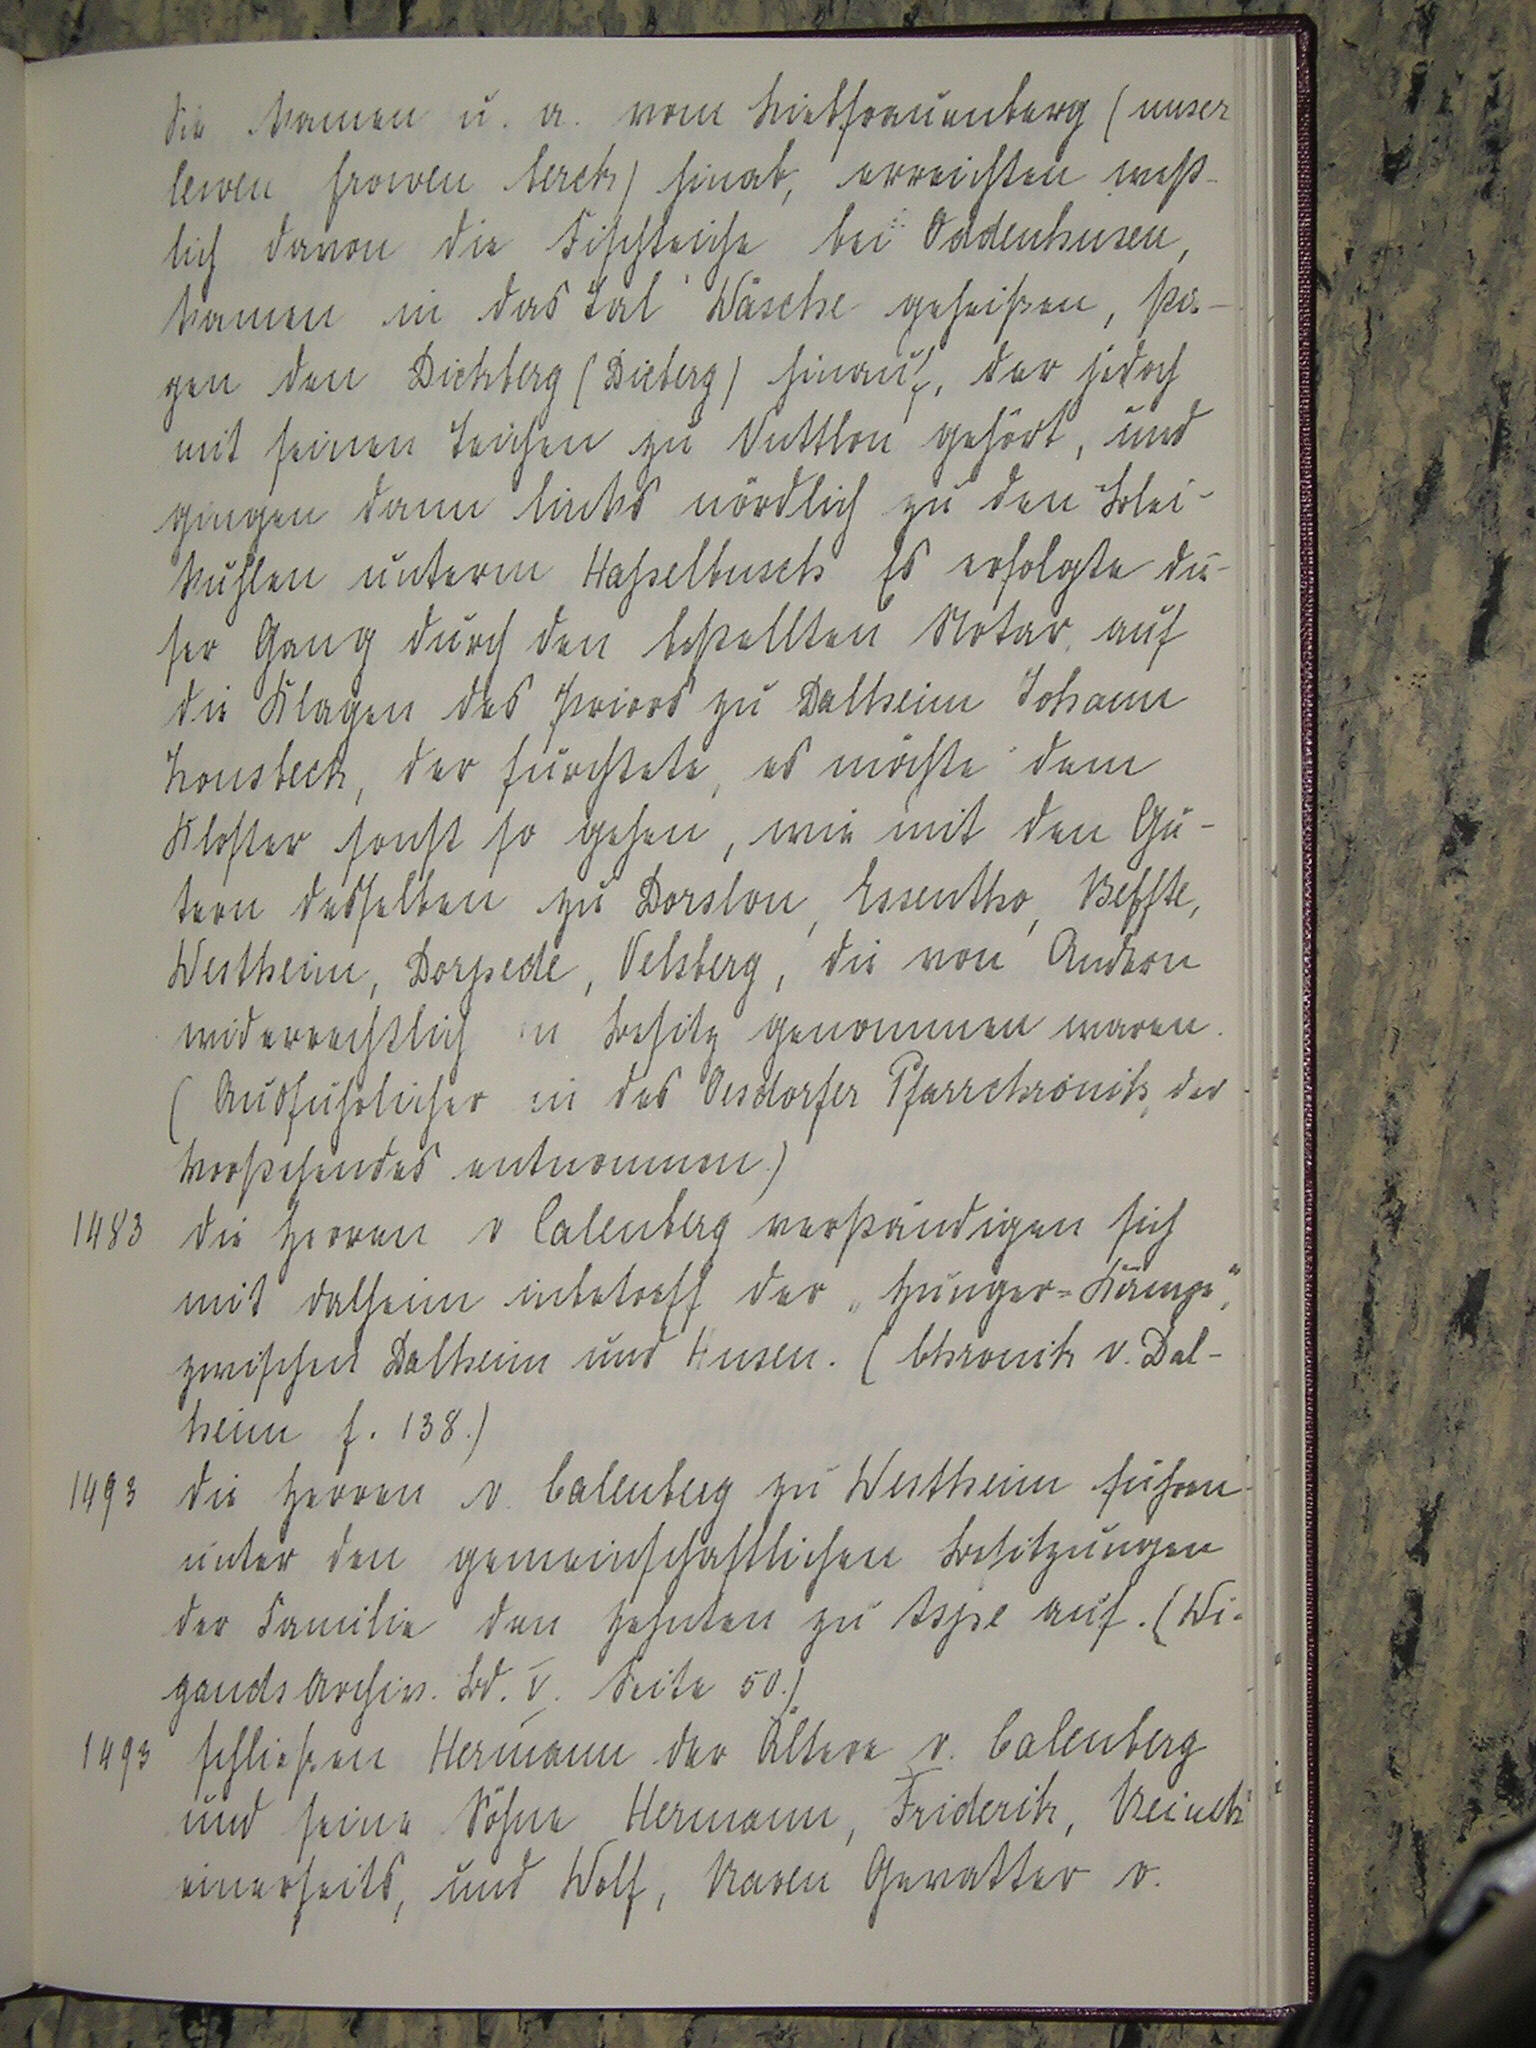 Sie kamen u. a. vom Liebfrauenberg (unser
lewen frowen berch) hinab, erreichten west-
lich davon die Fischteiche bei Oddenhusen,
kamen in das Tal Wäsche geheißen, stie-
gen den Dickberg (Dieberg) hinauf, der jedoch
mit seinen Teichen zu Vuttlon gehört, und
gingen dann links nördlich zu den Blei-
kuhlen unterm Haßelbusch Es erfolgte die-
ser Gang durch den bestellten Notar auf
die Klagen des Priors zu Dalheim Johann
Lonsbeck, der fürchtete, es möchte dem
Kloster sonst so gehen, wie mit den Gü-
tern desselben zu Dorslon, Essentho, Beffte,
Westheim, Dorpede, Velsberg, die von Andern
widerrechtlich in Besitz genommen waren.
(Ausführlicher in des Oesdorfer Pfarrchronik, der
Vorstehendes entnommen.)
1483 die Herren v Calenberg verständigen sich
mit Dalheim inbetreff der „Hunger-Kämpe",
zwischen Dalheim und Husen. (Chronik v. Dal-
heim f. 138.)
1493 die Herren v. Calenberg zu Westheim führen
unter den gemeinschaftlichen Besitzungen
der Familie den Zehnten zu Aspe auf. (Wi-
gands Archiv. Bd. V. Seite 50.)
1493 schließen Hermann der Ältere v. Calenberg
und seine Söhne Hermann, Friderik, Reineck
einerseits, und Wolf, Raven Gevatter v.